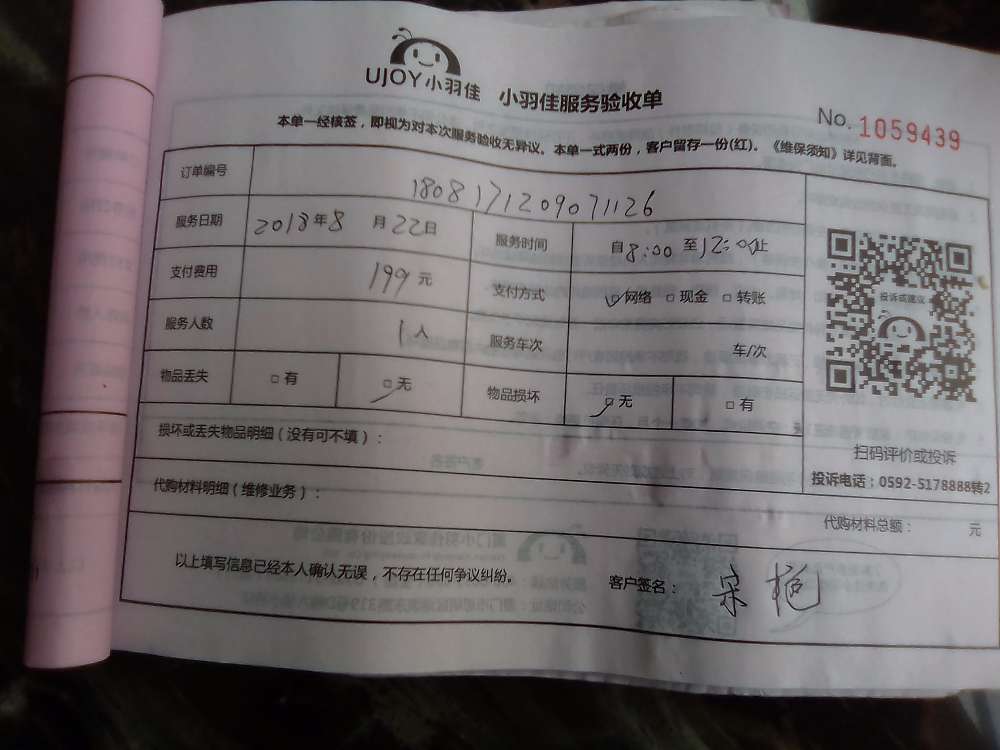 UJOY小羽佳 小羽佳服务验收单
No. 1059439
本单一经核签，即视为对本次服务验收无异议。本单一式两份，客户留存一份(红)。《维保须知》详见背面。
订单编号 180817120907 1126
服务日期 2018年8月22日 服务时间 自8:00至12:00止
支付费用 199元 支付方式 ☑网络 □现金 □转账
服务人数 1人 服务车次 车/次
物品丢失 □有 ☑无 物品损坏 ☑无 □有
投诉或建议
扫码评价或投诉
投诉电话：0592-5178888转2
损坏或丢失物品明细（没有可不填）：
代购材料明细（维修业务）：
代购材料总额： 元
以上填写信息已经本人确认无误，不存在任何争议纠纷。 客户签名： 宋艳